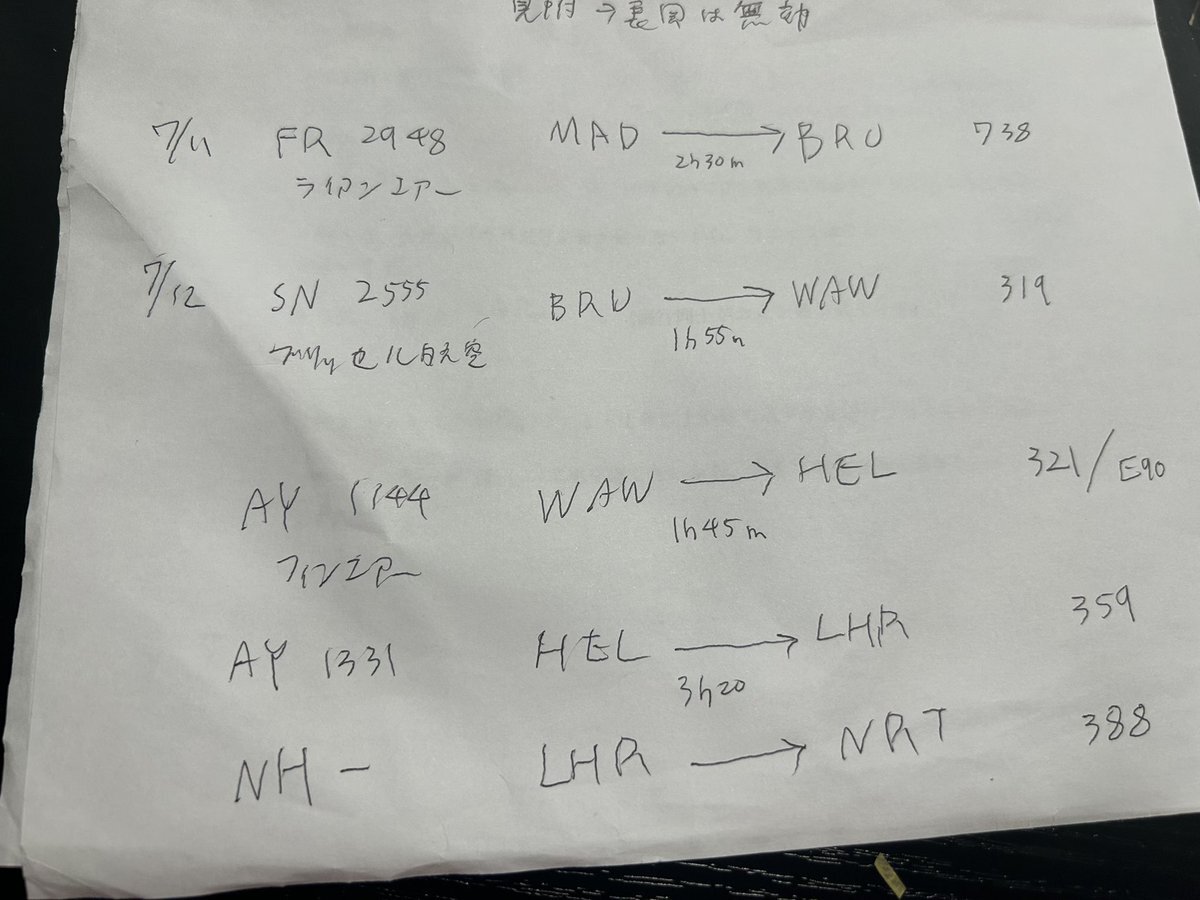 →裏図は無効
7/11 FR 2948 MAD → BRU 738
2h30m
ライアンエアー
7/12 SN 2555 BRU → WAW 319
1h55m
ブリュッセル航空
AY 1144 WAW → HEL 321/E90
1h45m
フィンエアー
AY 1331 HEL → LHR 359
3h20
NH - LHR → NRT 388